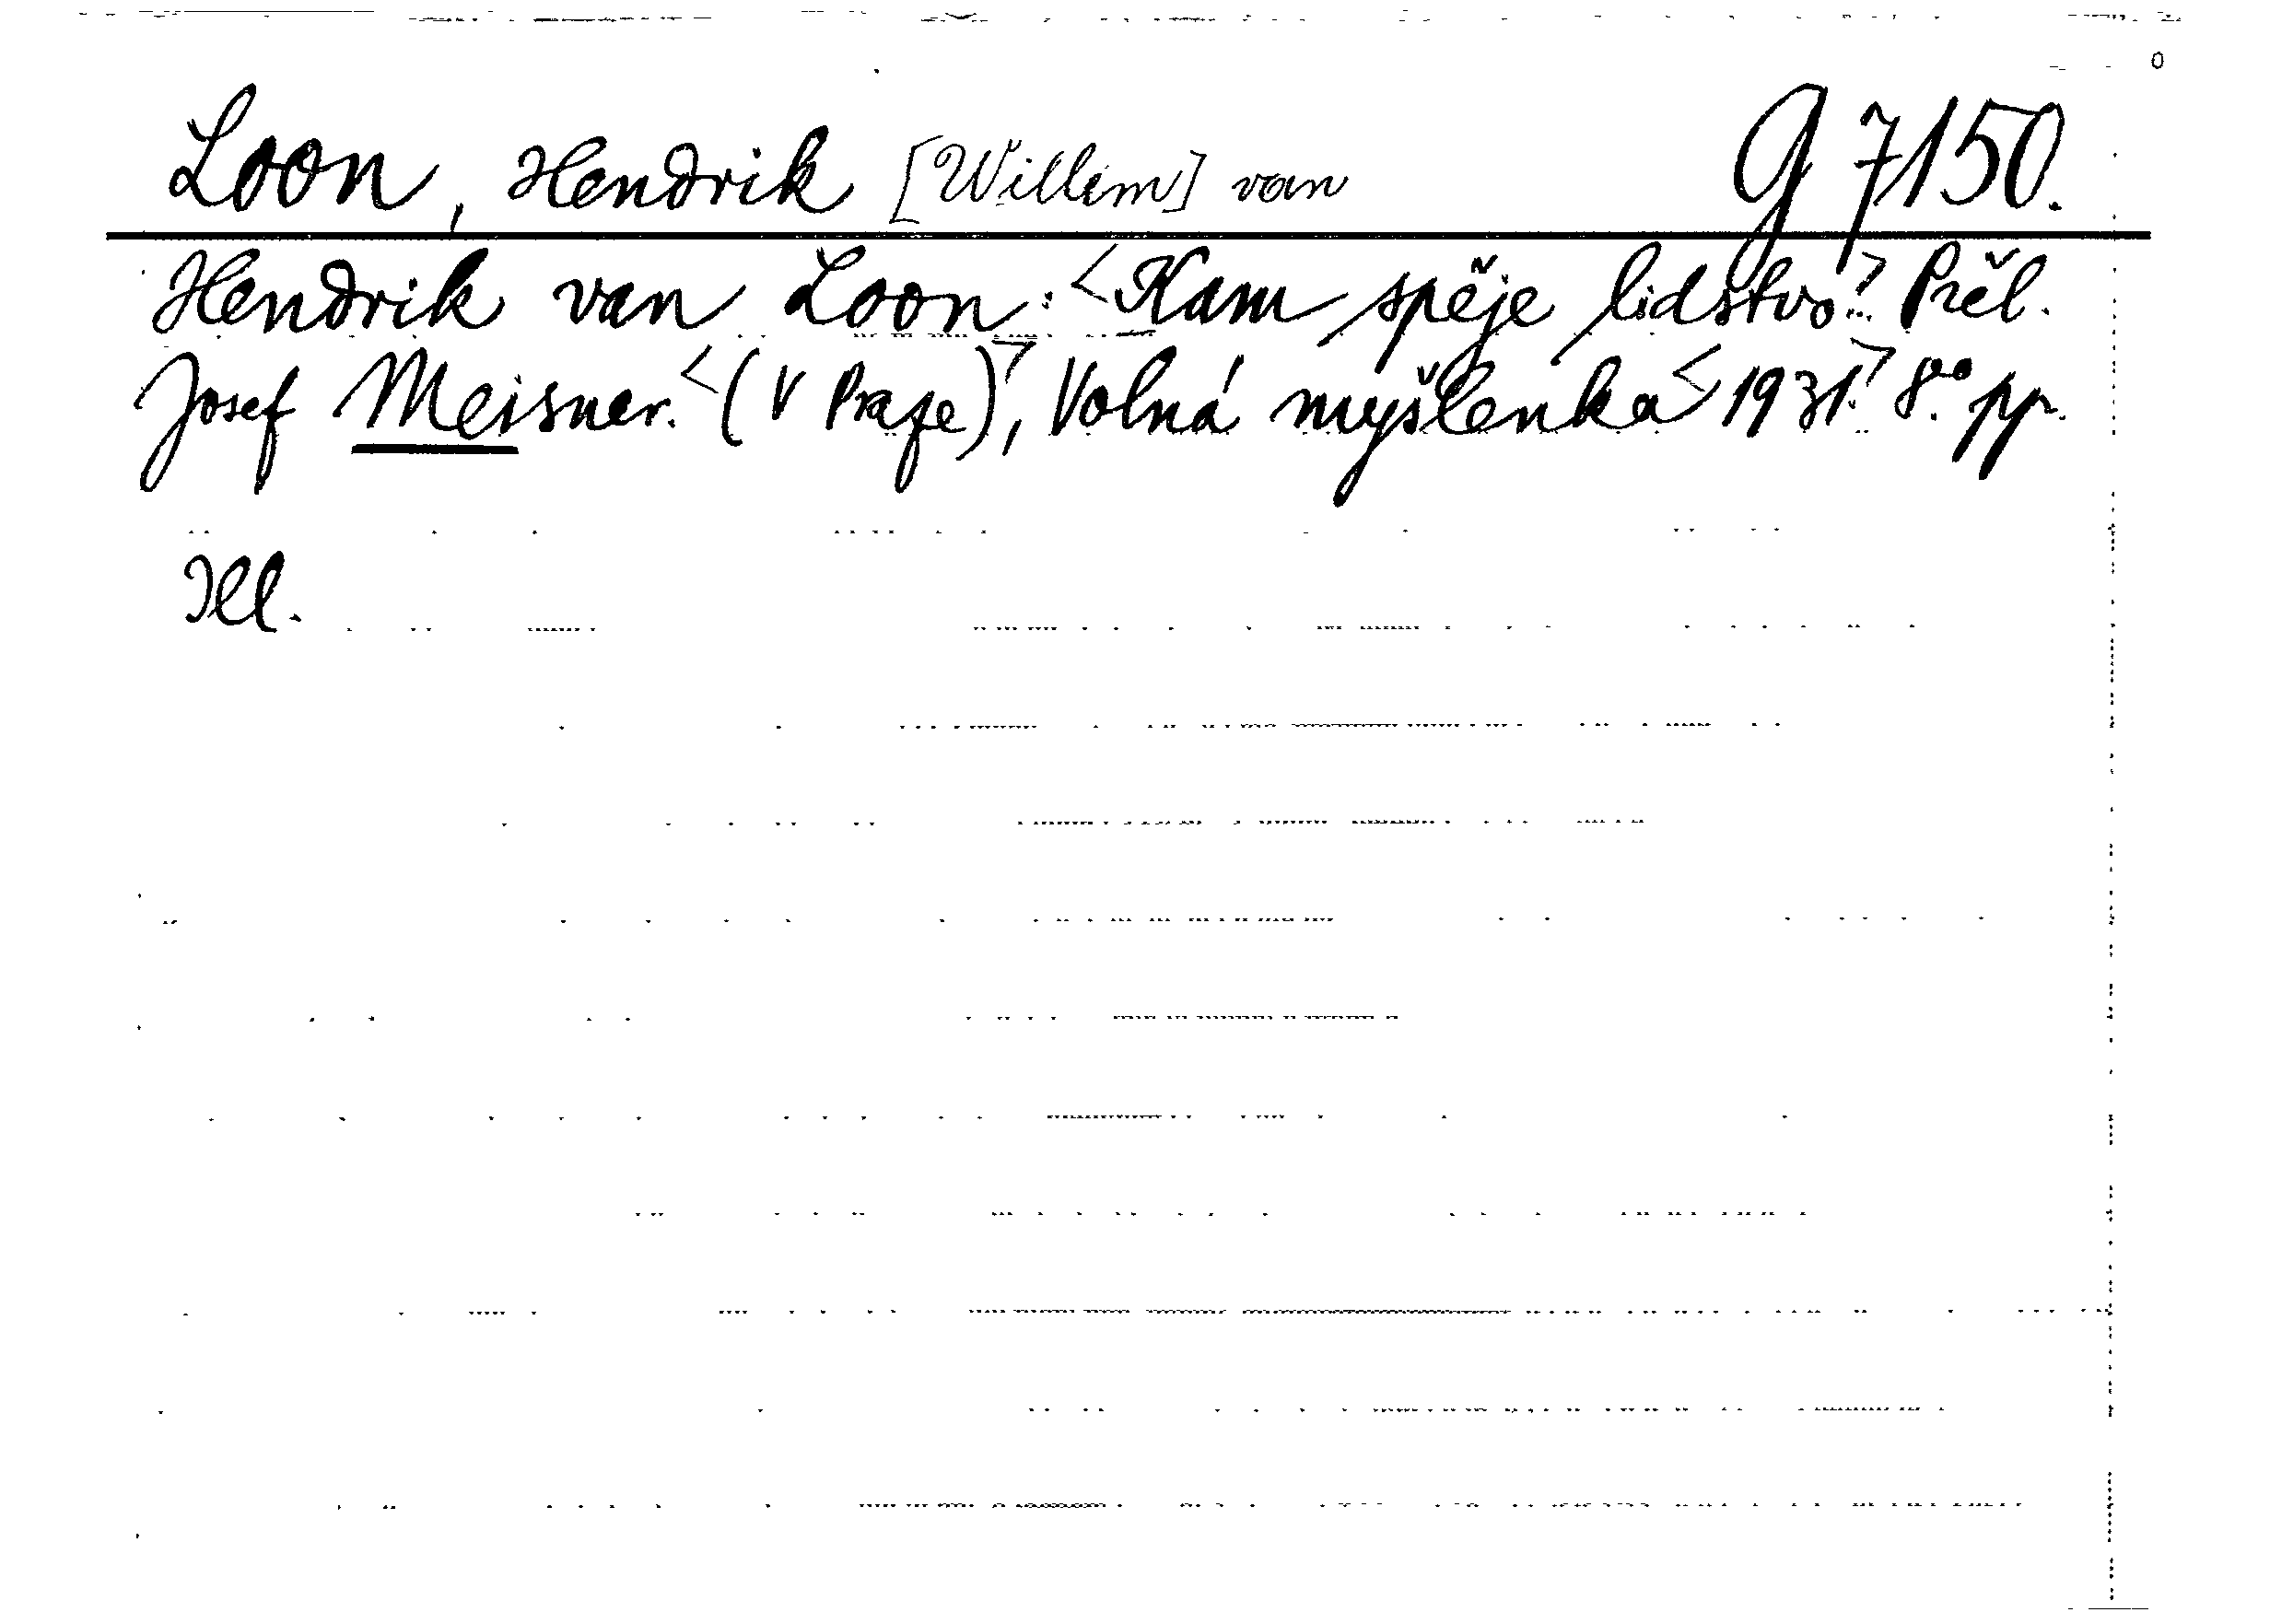 Loon, Hendrik [Willem] van G 7150.
Hendrik van Loon: <Kam spěje lidstvo?> Přel.
Josef Meisner. <(V Praze)>, Volná myšlenka <1931.> 8.° pp.
Ill.